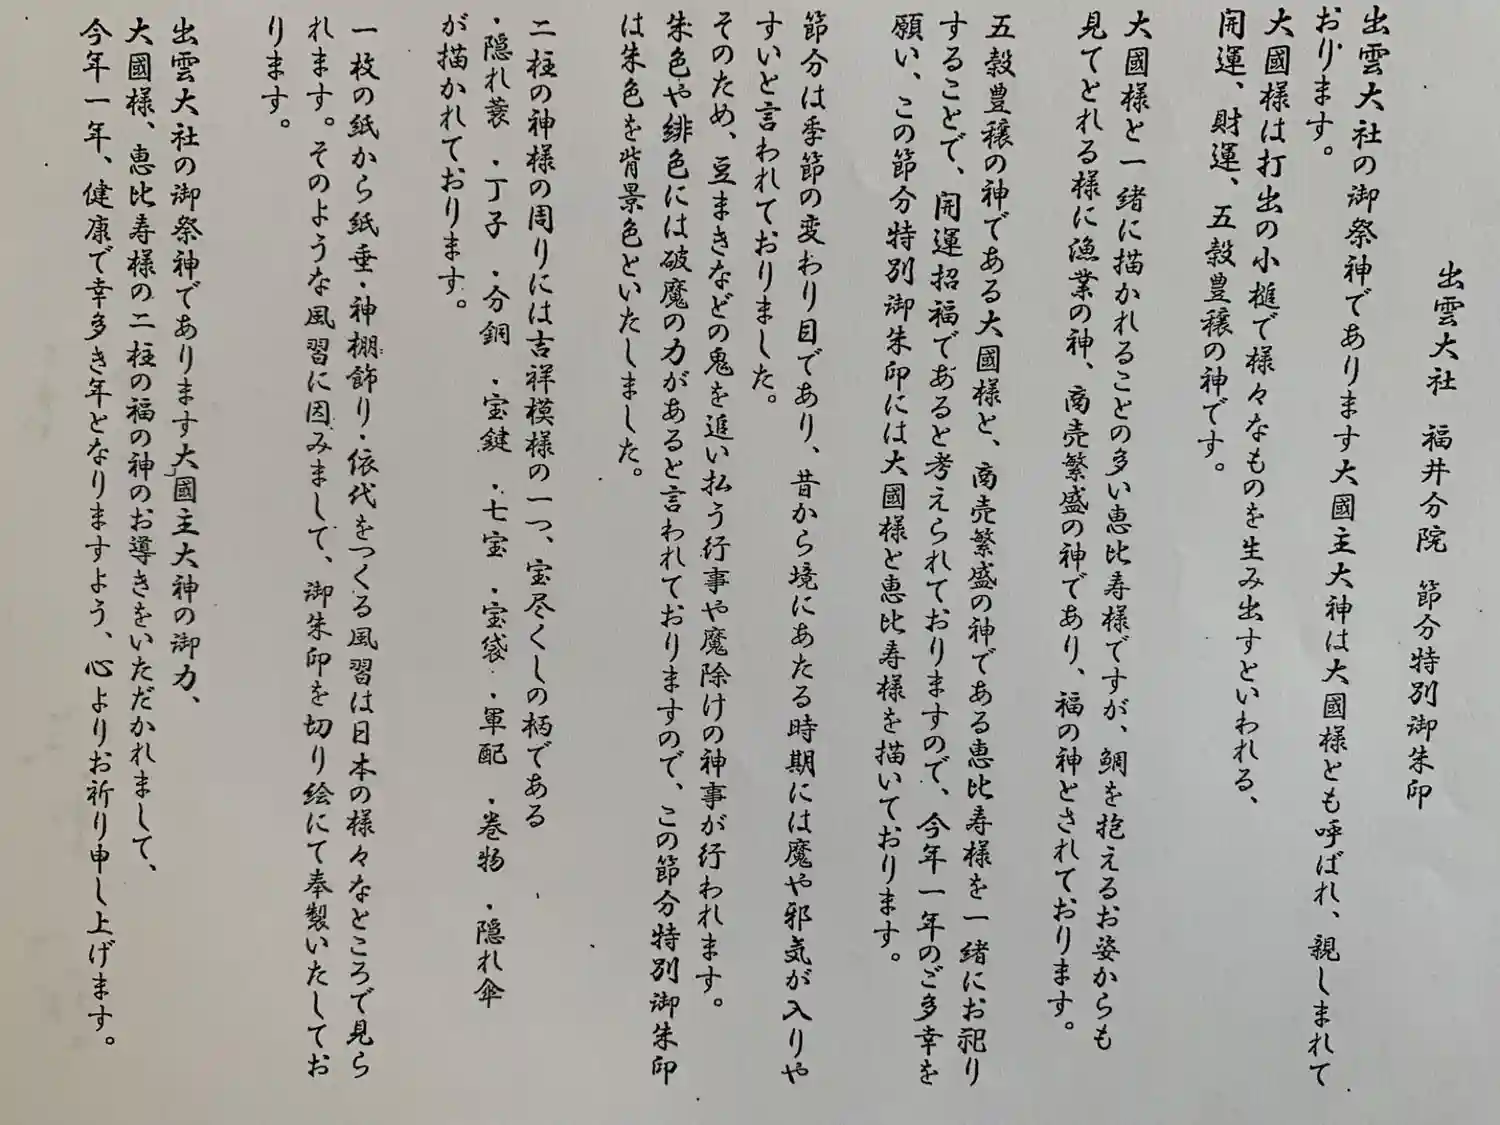 出雲大社 福井分院 節分特別御朱印
出雲大社の御祭神であります大國主大神は大國様とも呼ばれ、親しまれて
おります。
大國様は打出の小槌で様々なものを生み出すといわれる、
開運、財運、五穀豊穣の神です。
大國様と一緒に描かれることの多い恵比寿様ですが、鯛を抱えるお姿からも
見てとれる様に漁業の神、商売繁盛の神であり、福の神とされております。
五穀豊穣の神である大國様と、商売繁盛の神である恵比寿様を一緒にお祀り
することで、開運招福であると考えられておりますので、今年一年のご多幸を
願い、この節分特別御朱印には大國様と恵比寿様を描いております。
節分は季節の変わり目であり、昔から境にあたる時期には魔や邪気が入りや
すいと言われておりました。
そのため、豆まきなどの鬼を追い払う行事や魔除けの神事が行われます。
朱色や緋色には破魔の力があると言われておりますので、この節分特別御朱印
は朱色を背景色といたしました。
二柱の神様の周りには吉祥模様の一つ、宝尽くしの柄である
・隠れ蓑 ・丁子 ・分銅 ・宝鍵 ・七宝 ・宝袋 ・軍配 ・巻物 ・隠れ傘
が描かれております。
一枚の紙から紙垂・神棚飾り・依代をつくる風習は日本の様々なところで見ら
れます。そのような風習に因みまして、御朱印を切り絵にて奉製いたしてお
ります。
出雲大社の御祭神であります大國主大神の御力、
大國様、恵比寿様の二柱の福の神のお導きをいただかれまして、
今年一年、健康で幸多き年となりますよう、心よりお祈り申し上げます。